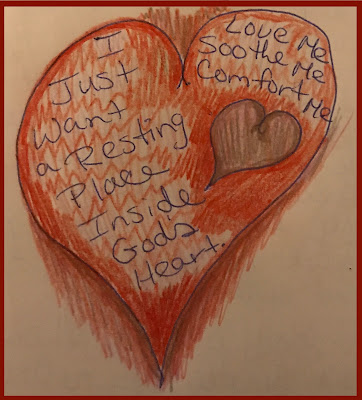 I
Just
Want
a Resting
Place
Inside
Gods
Heart.
Love Me
Soothe Me
Comfort Me